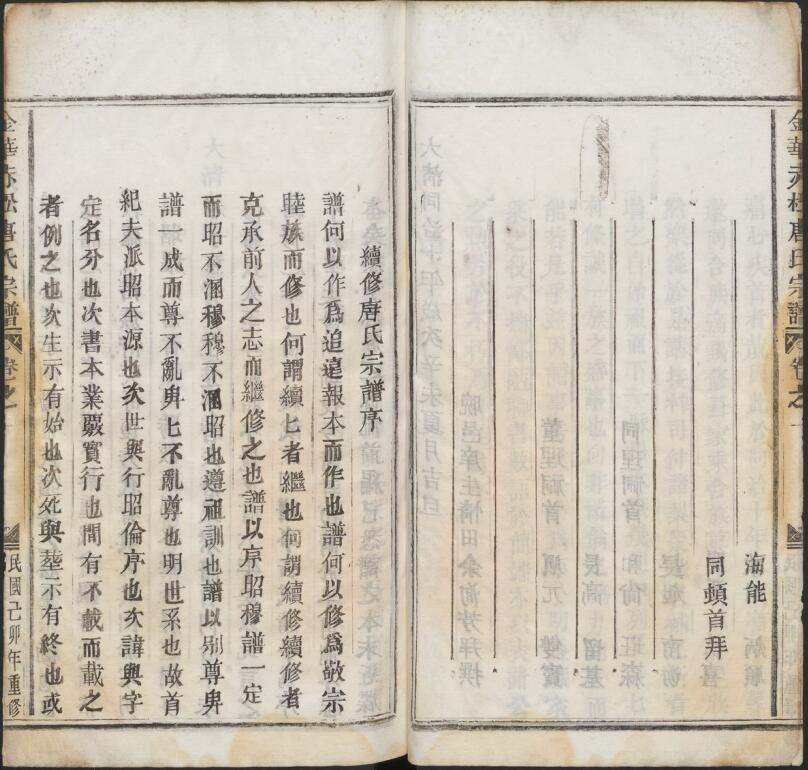 海能
同頓首拜
金華赤松唐氏宗譜 卷之一
續修唐氏宗譜序
譜何以作爲追遠報本而作也譜何以修爲敬宗
睦族而修也何謂續匕者繼也何謂續修續修者
克承前人之志而繼修之也譜以序昭穆譜一定
而昭不溷穆穆不溷昭也遵祖訓也譜以别尊卑
譜一成而尊不亂卑匕不亂尊也明世系也故首
紀夫派昭本源也次世與行昭倫序也次諱與字
定名分也次書本業覈實行也間有不載而載之
者例之也次生示有始也次死與塟示有終也或
金華赤松唐氏宗譜 卷之一
民國己卯年重修